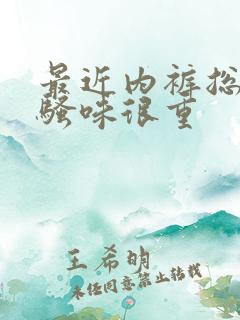 最近内裤总
骚味很重
王希明
未经同意禁止转载